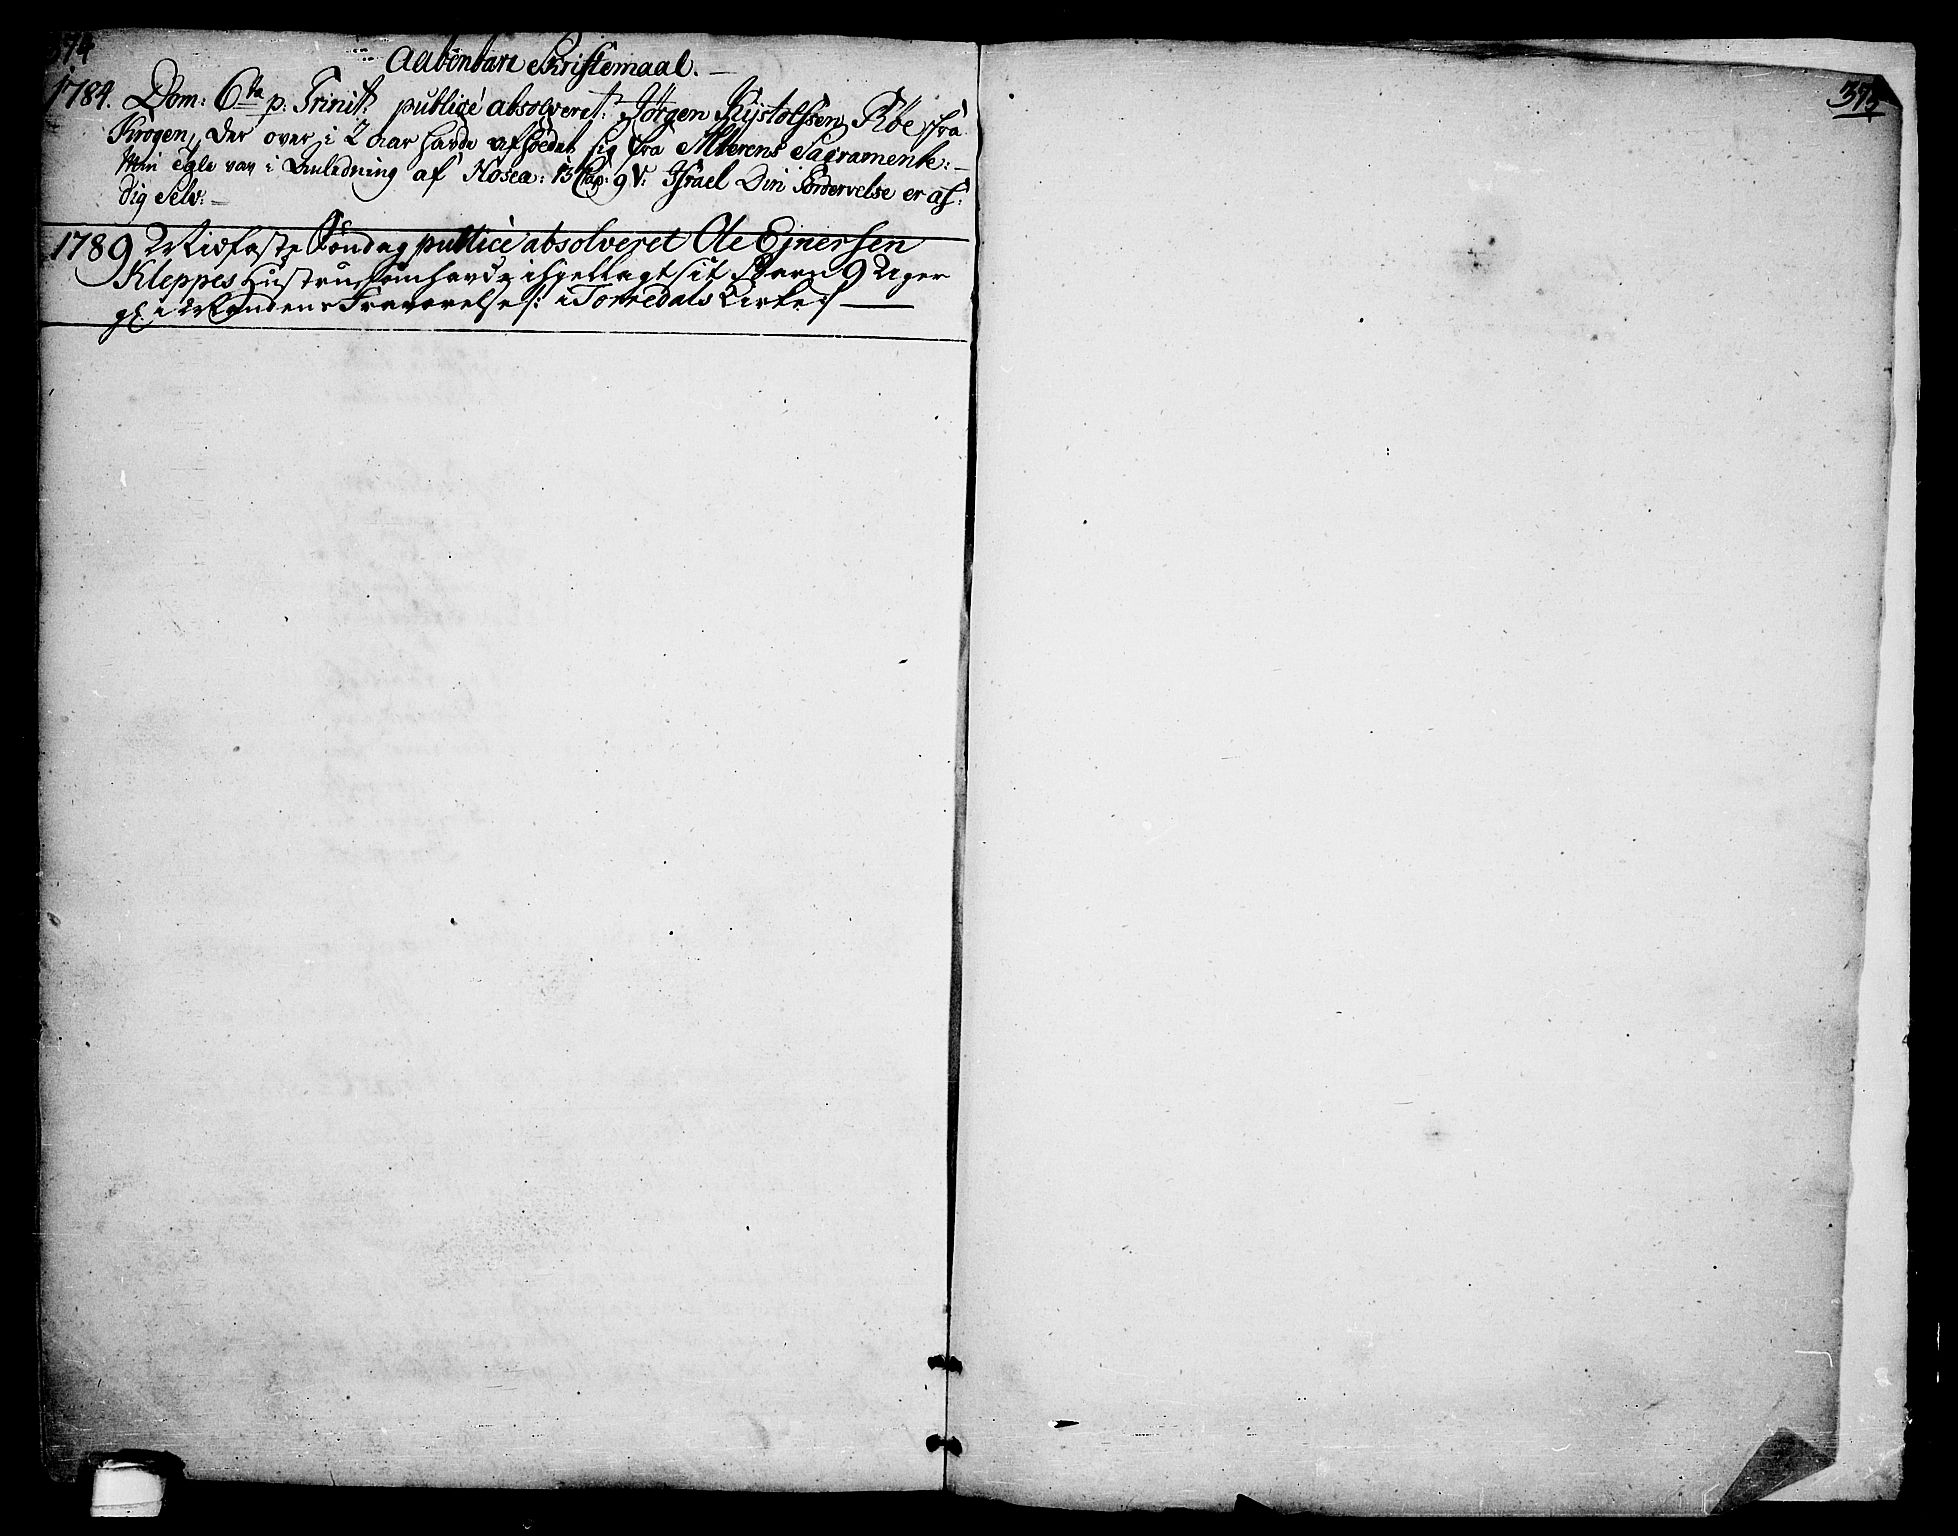 374
Aabenbare Skriftemaal. —
1784. Dom: 6ta p: Trinit: publicè absolveret: Jørgen Kystolfsen Røe fra
Krogen, der over i 2 aar havde afholdet sig fra Alterens Sacramente: —
Min Tale var i Anledning af Hosea: 13 Cap: 9 V: Israel Din Fordervelse er af
dig Selv: —
1789 Midfaste Søndag publicè absolveret Ole Ejnersen
Kleppes Hustru som havde ihjellagt sit Barn 9 Uger
gl. i Mandens Fraværelse /: i Torredals Kirke :/ —
375